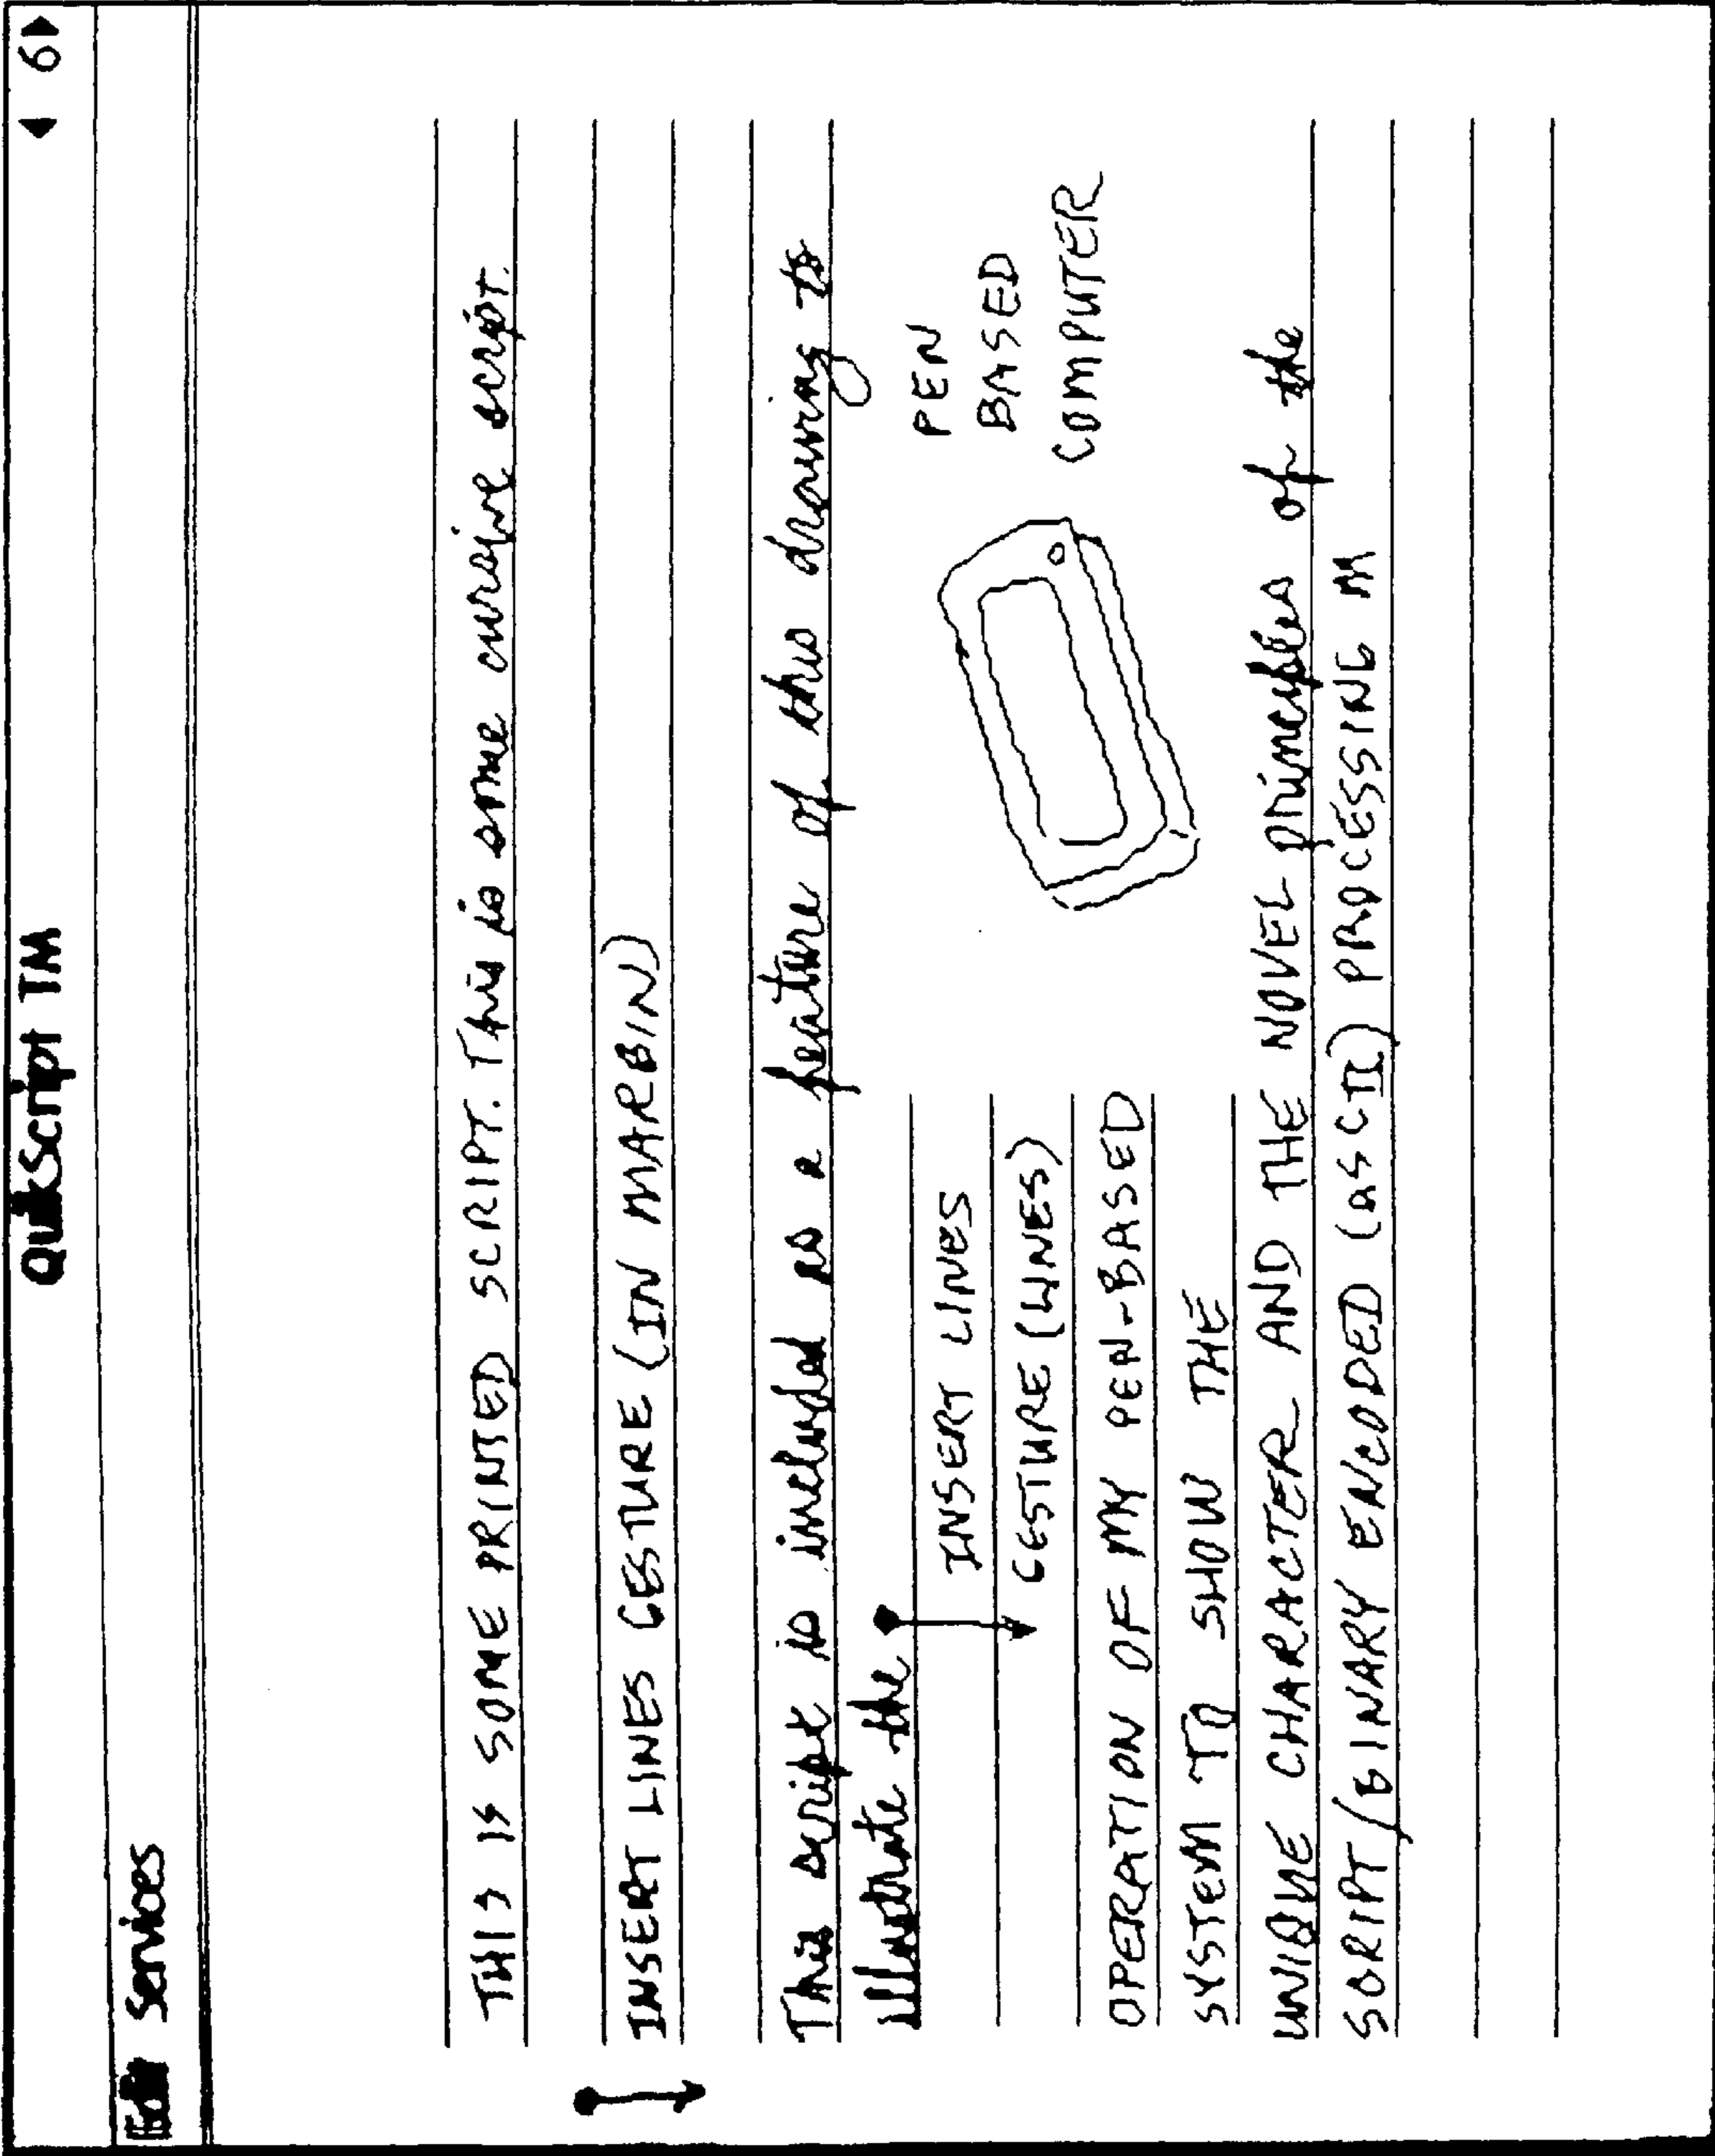 QuikScript TM
◄ 6 ►
Edit Services
THIS IS SOME PRINTED SCRIPT. This is some cursive script.
INSERT LINES GESTURE (IN MARGIN)
This script is included as a feature of this drawing to
illustrate the
INSERT LINES
GESTURE (LINES)
PEN
BASED
COMPUTER
OPERATION OF MY PEN-BASED
SYSTEM TO SHOW THE
UNIQUE CHARACTER AND THE NOVEL principles of the
SCRIPT/BINARY ENCODED (ASCII) PROCESSING M